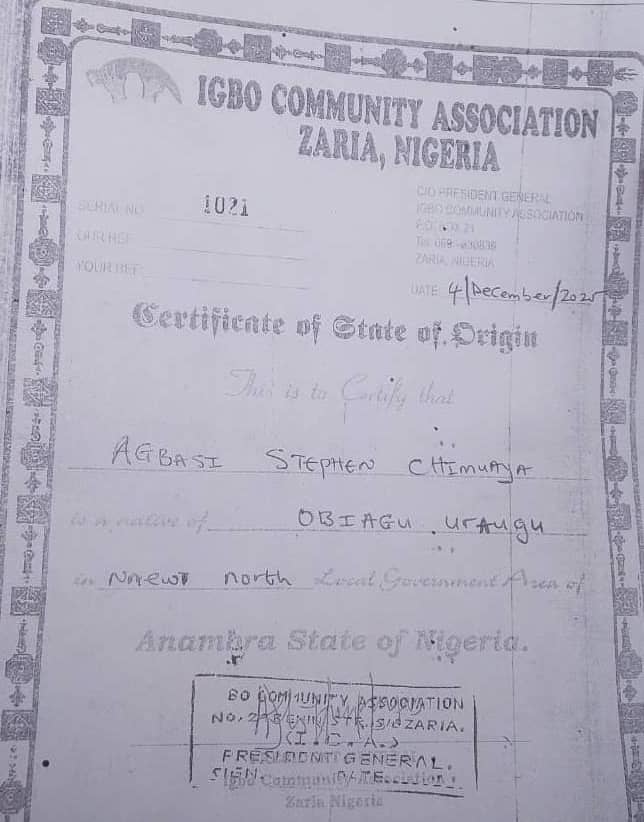 IGBO COMMUNITY ASSOCIATION
ZARIA, NIGERIA
C/O PRESIDENT GENERAL
IGBO COMMUNITY ASSOCIATION
SERIAL NO 1021
OUR REF
YOUR REF
ZARIA, NIGERIA
DATE 4/December/2025
Certificate of State of Origin
This is to Certify that
AGBASI STEPHEN CHIMUAYA
is a native of OBIAGU uruagu
in Nnewi north Local Government Area of
Anambra State of Nigeria.
BO COMMUNITY ASSOCIATION
ZARIA.
(I.C.A.)
PRESIDENT GENERAL.
SIGN. DATE
Igbo Community Association
Zaria Nigeria